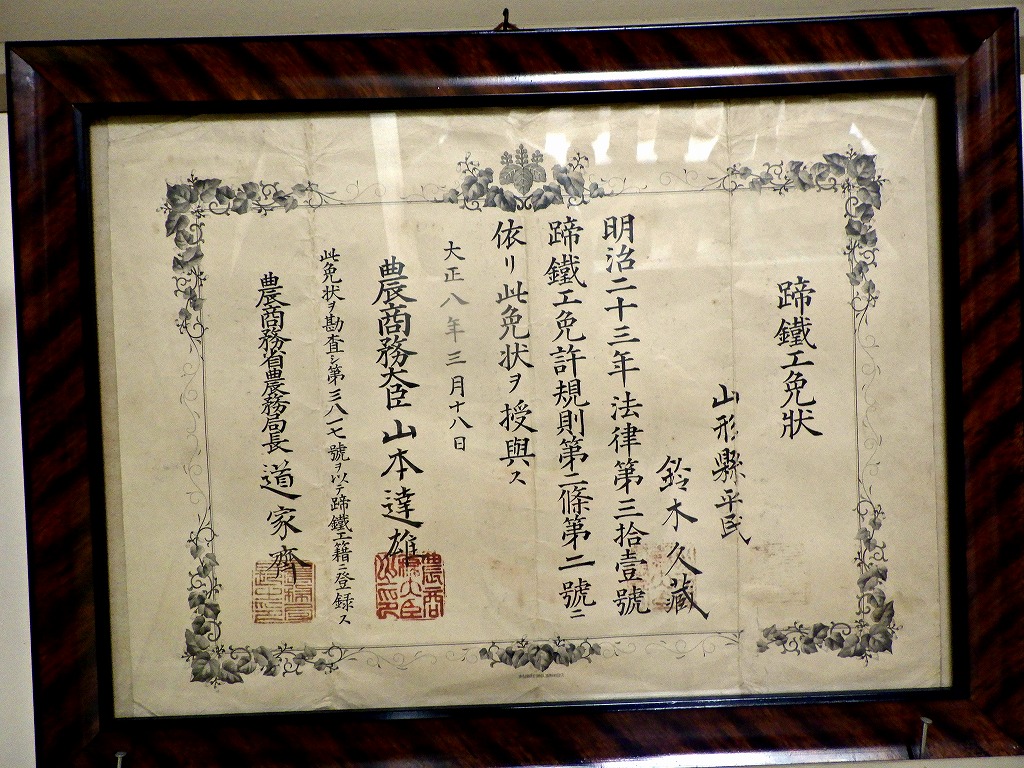 蹄鐵工免狀
山形縣平民
鈴木久藏
明治二十三年法律第三拾壹號
蹄鐵工免許規則第二條第二號ニ
依リ此免状ヲ授與ス
大正八年三月十八日
農商務大臣山本達雄
此免状ヲ勘査シ第三八一七號ヲ以テ蹄鐵工籍ニ登録ス
農商務省農務局長道家齊